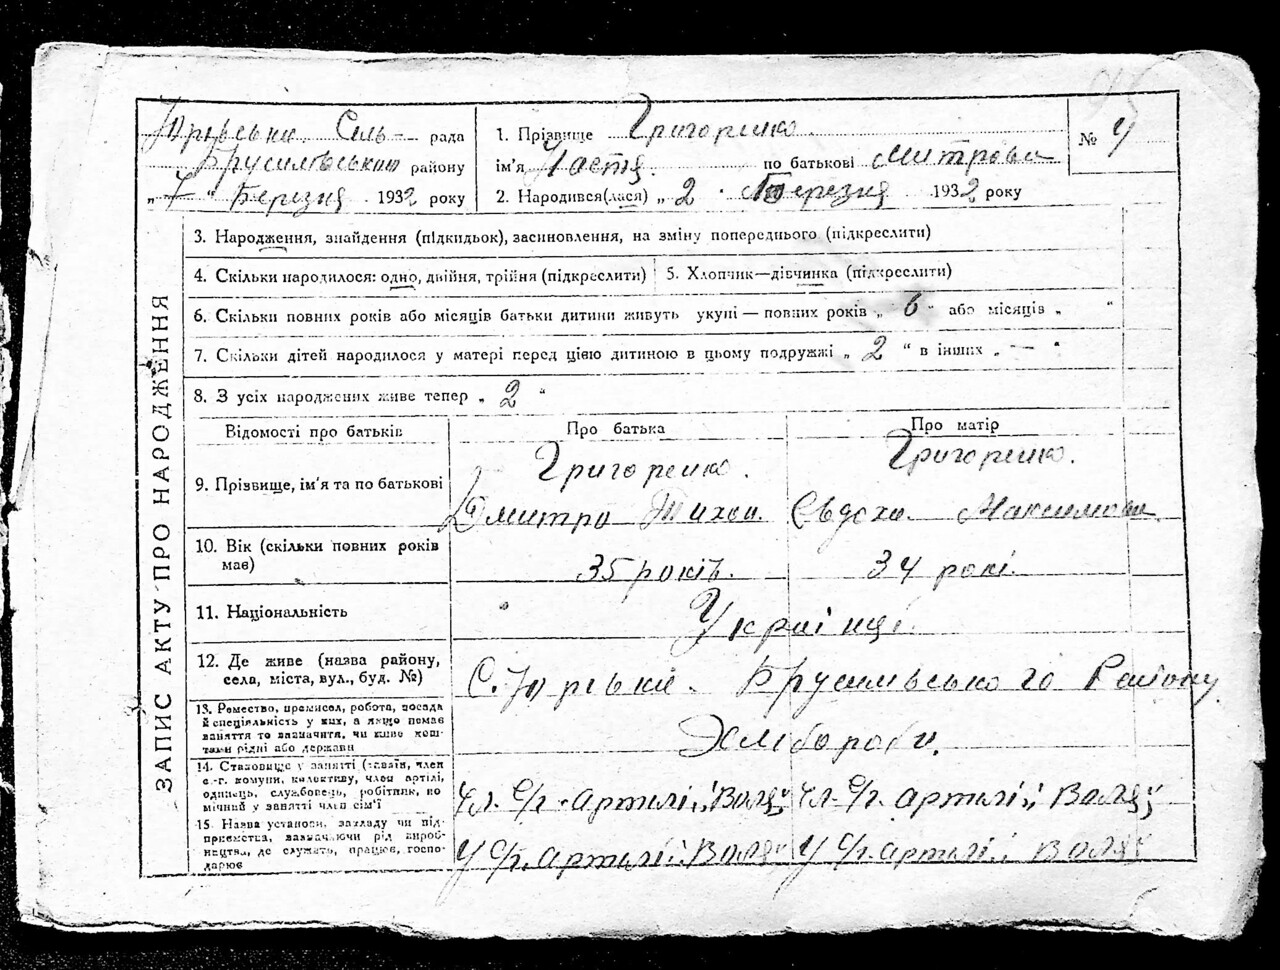 95
Юрівська Сіль- рада
Брусилівського району
„ 7 " Березня 1932 року
1. Прізвище Григоренко.
ім'я Настя. по батькові Митрова
2. Народився(лася) „ 2 " Березня 1932 року
№ 4
ЗАПИС АКТУ ПРО НАРОДЖЕННЯ
3. Народження, знайдення (підкидьок), засиновлення, на зміну попереднього (підкреслити)
4. Скільки народилося: одно, двійня, трійня (підкреслити) 5. Хлопчик—дівчинка (підкреслити)
6. Скільки повних років або місяців батьки дитини живуть укупі — повних років „ 6 " або місяців „ "
7. Скільки дітей народилося у матері перед цією дитиною в цьому подружжі „ 2 " в інших „ — "
8. З усіх народжених живе тепер „ 2 "
Відомості про батьків Про батька Про матір
9. Прізвище, ім'я та по батькові Григоренко. Григоренко.
Дмитро Тихон. Євдоха Максимова
10. Вік (скільки повних років
має) 35 років. 34 рокі.
11. Національність " Україіпці.
12. Де живе (назва району,
села, міста, вул., буд. №) С. Юрівка. Брусилівського Району
13. Ремество, промисел, робота, посада
й спеціяльність у них, а якщо немає
заняття то зазначити, чи живе кош-
тами рідні або держави
Хлібороби.
14. Становище у занятті (хазяїн, член
с.-г. комуни, колективу, член артілі,
одинець, службовець, робітник, по
мічний у занятті член сім'ї
Чл. С/г. артілі „Воля" Чл. С/г. артілі „Воля"
15. Назва установи, закладу чи під-
приємства, зазначаючи рід вироб-
ництва, де служать, працює, госпо-
дарює
У С/г. артілі „Воля" У С/г. артілі „Воля"